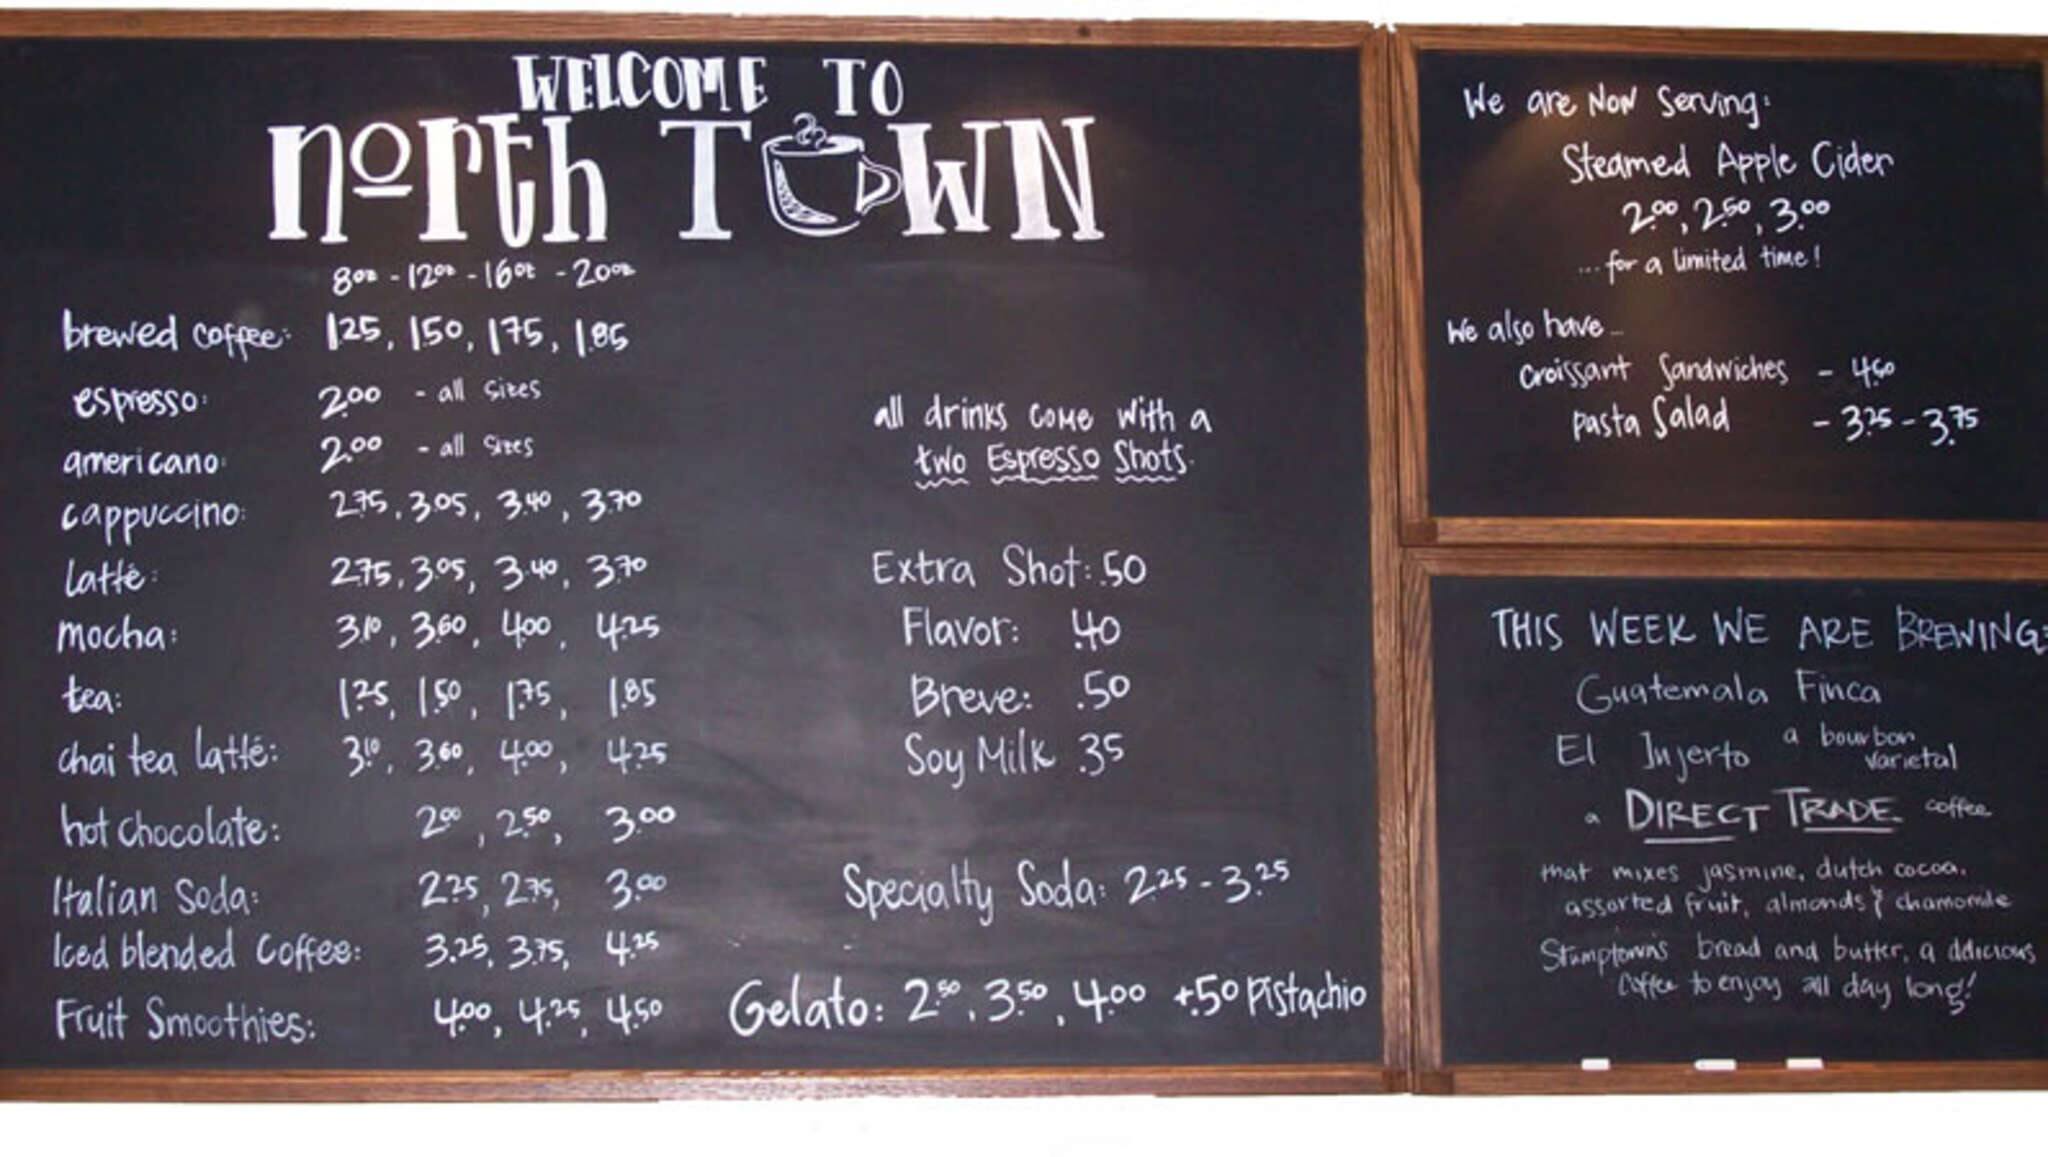 WELCOME TO
NORTH TOWN
8oz - 12oz - 16oz - 20oz
brewed coffee: 1.25, 1.50, 1.75, 1.85
espresso: 2.00 - all sizes
americano: 2.00 - all sizes
cappuccino: 2.75, 3.05, 3.40, 3.70
Latté: 2.75, 3.05, 3.40, 3.70
mocha: 3.10, 3.60, 4.00, 4.25
tea: 1.25, 1.50, 1.75, 1.85
chai tea latté: 3.10, 3.60, 4.00, 4.25
hot chocolate: 2.00, 2.50, 3.00
Italian Soda: 2.25, 2.75, 3.00
Iced blended Coffee: 3.25, 3.75, 4.25
Fruit Smoothies: 4.00, 4.25, 4.50
all drinks come with a
two Espresso Shots.
Extra Shot: .50
Flavor: .40
Breve: .50
Soy Milk .35
Specialty Soda: 2.25 - 3.25
Gelato: 2.50, 3.50, 4.00 +.50 Pistachio
We are Now Serving:
Steamed Apple Cider
2.00, 2.50, 3.00
...for a limited time!
We also have...
Croissant Sandwiches - 4.50
Pasta Salad - 3.25 - 3.75
THIS WEEK WE ARE BREWING:
Guatemala Finca
El Injerto a bourbon
varietal
a DIRECT TRADE coffee
that mixes jasmine, dutch cocoa,
assorted fruit, almonds & chamomile
Stumptown's bread and butter, a delicious
coffee to enjoy all day long!